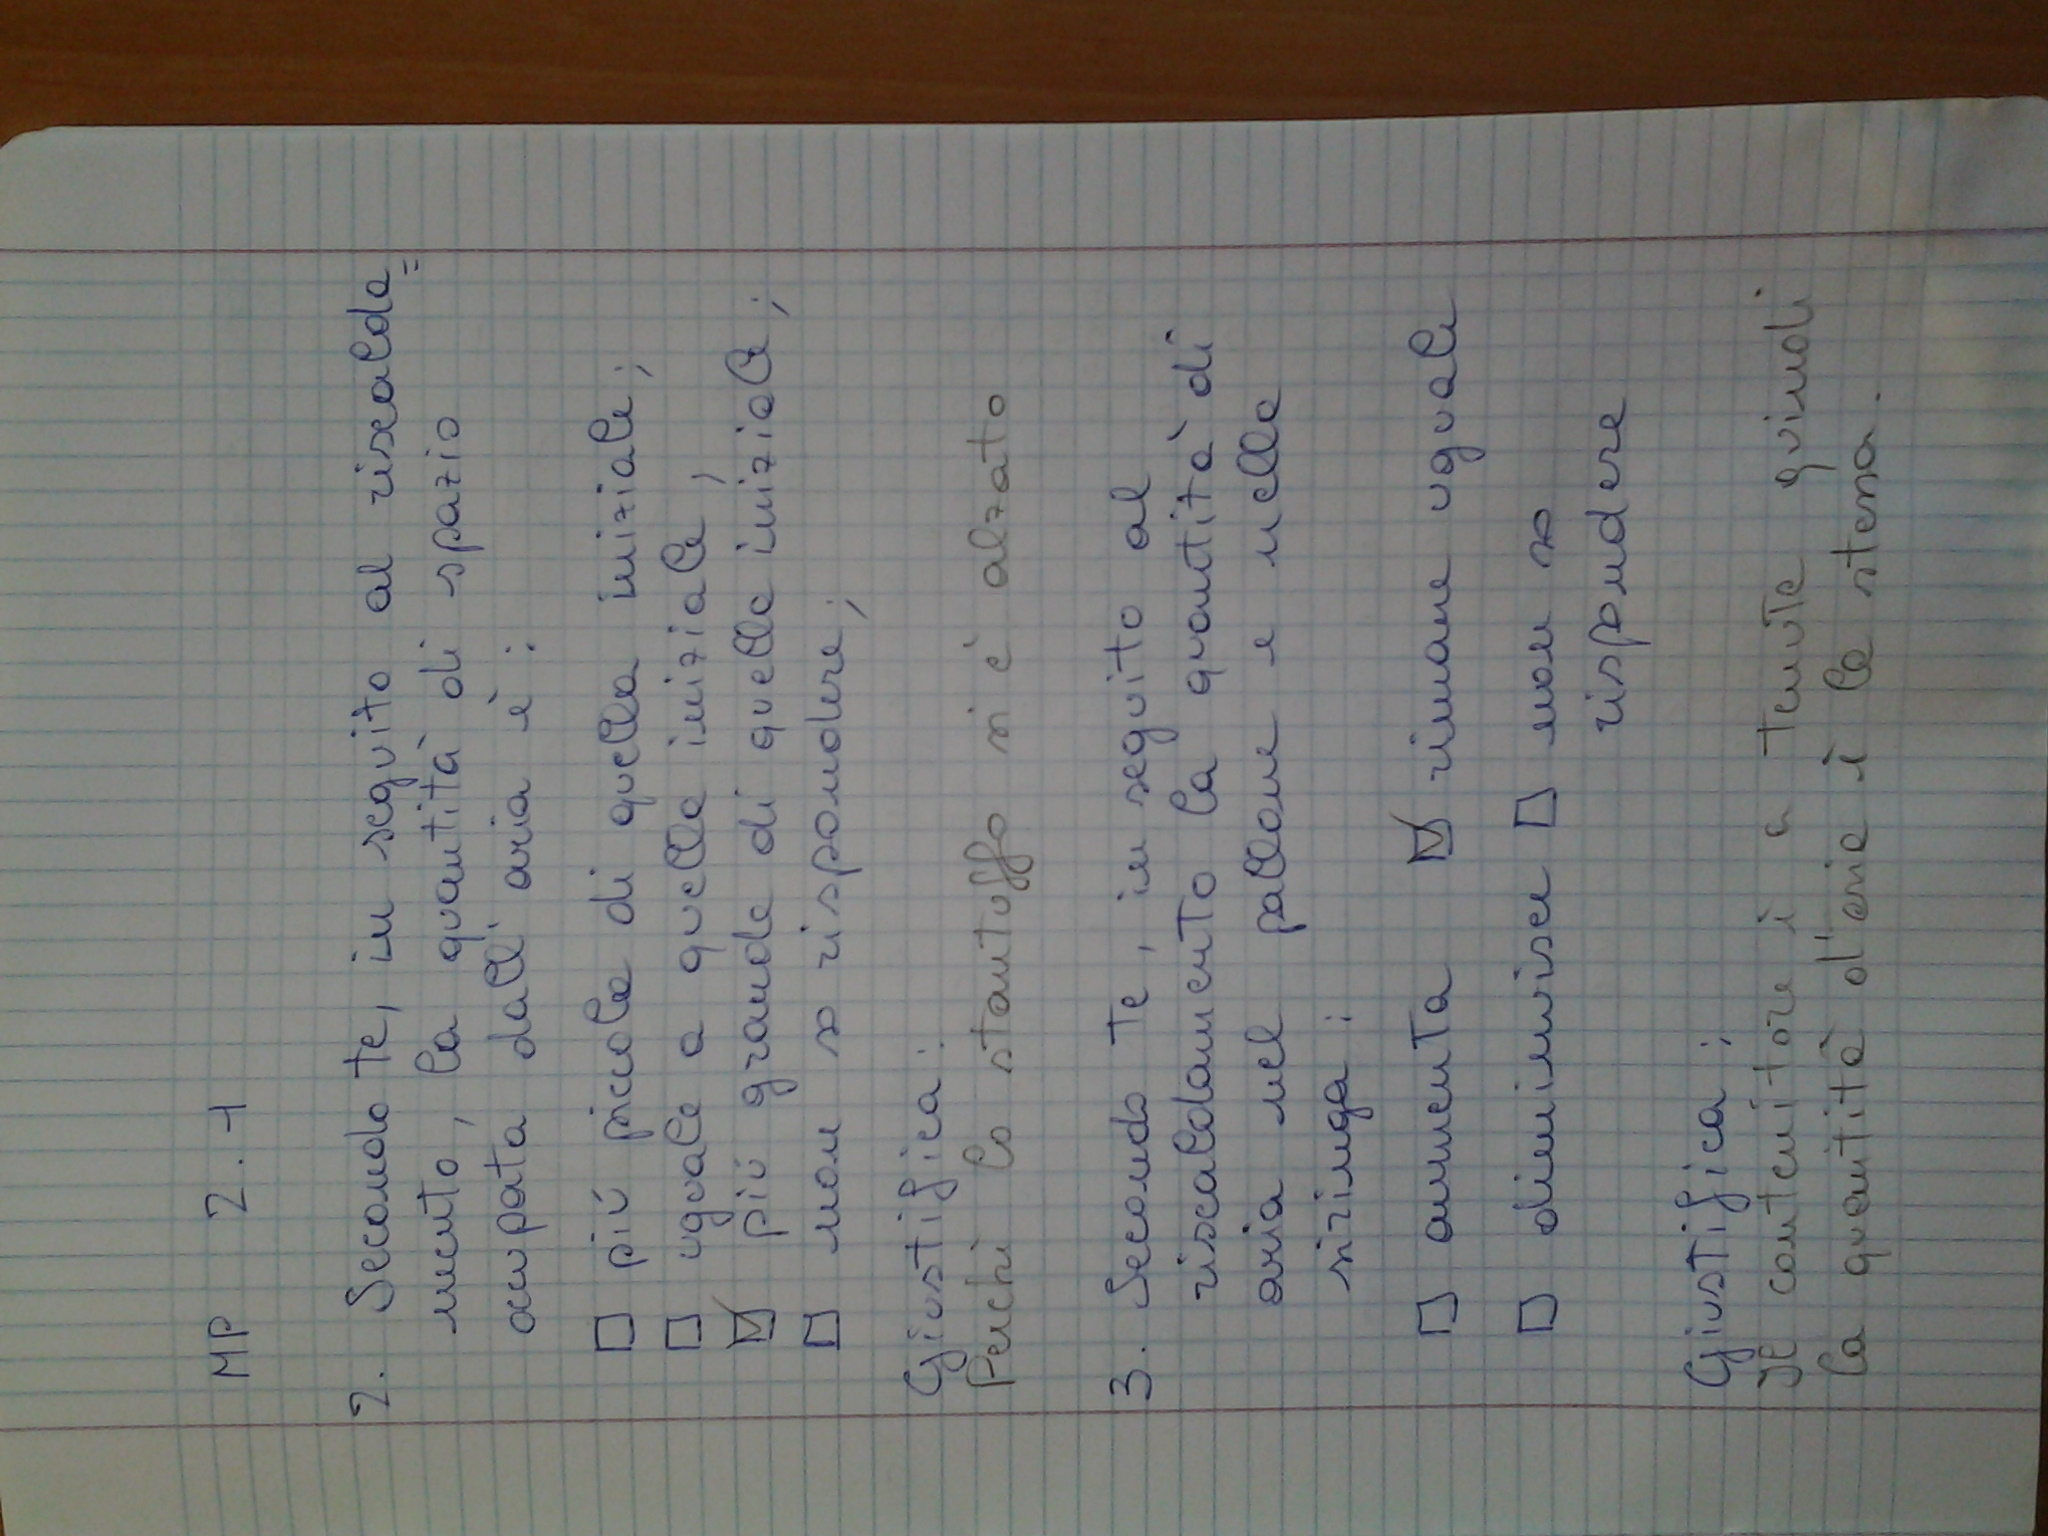 MP 2.1
2. Secondo te, in seguito al riscalda=
mento, la quantità di spazio
occupata dall'aria è:
□ più piccola di quella iniziale;
□ uguale a quella iniziale;
☑ più grande di quella iniziale;
□ non so rispondere;
Giustifica:
Perché lo stantuffo si è alzato
3. Secondo te, in seguito al
riscaldamento la quantità di
aria nel pallone e nella
siringa:
□ aumenta ☑ rimane uguale
□ diminuisce □ non so
rispondere
Giustifica:
Il contenitore è a tenuta quindi
la quantità d'aria è la stessa.